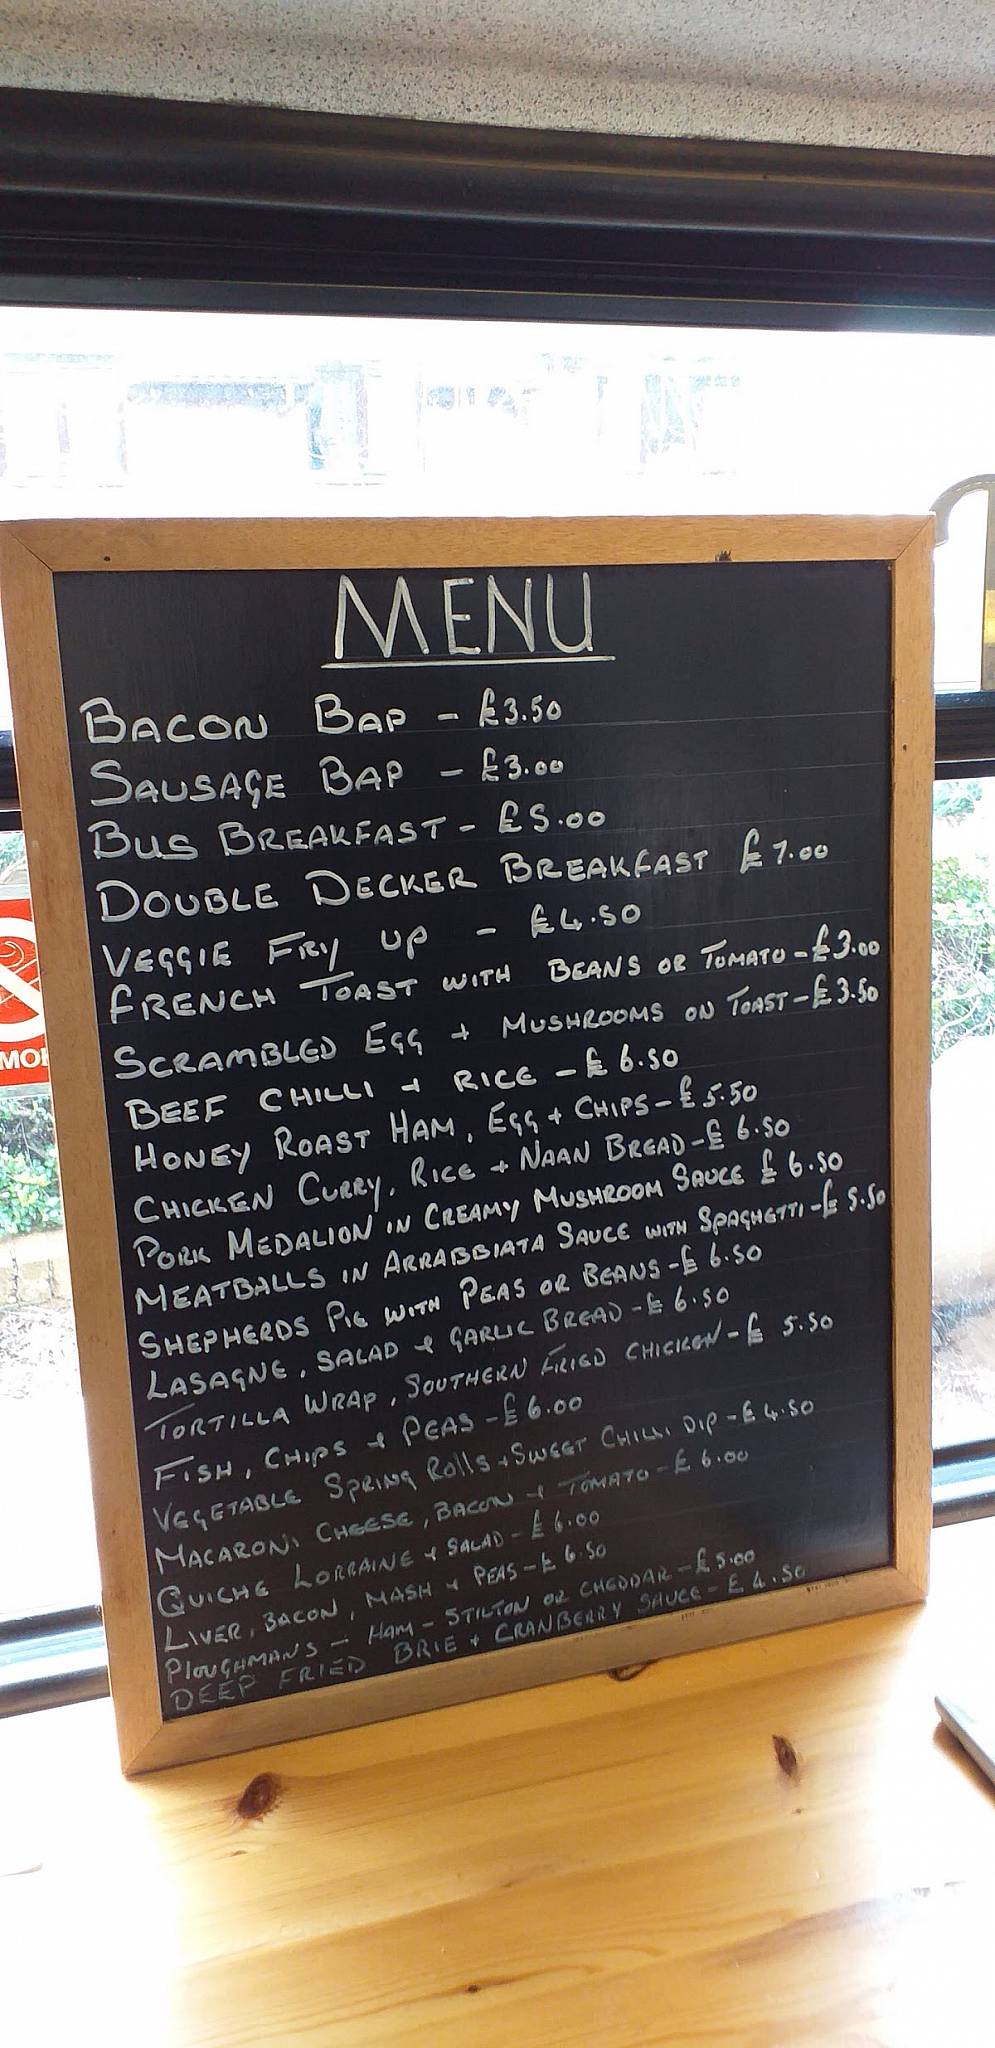 MENU
BACON BAP - £3.50
SAUSAGE BAP - £3.00
BUS BREAKFAST - £5.00
DOUBLE DECKER BREAKFAST £7.00
VEGGIE FRY UP - £4.50
FRENCH TOAST WITH BEANS OR TOMATO - £3.00
SCRAMBLED EGG + MUSHROOMS ON TOAST - £3.50
BEEF CHILLI + RICE - £6.50
HONEY ROAST HAM, EGG + CHIPS - £5.50
CHICKEN CURRY, RICE + NAAN BREAD - £6.50
PORK MEDALION IN CREAMY MUSHROOM SAUCE £6.50
MEATBALLS IN ARRABBIATA SAUCE WITH SPAGHETTI - £5.50
SHEPHERDS PIE WITH PEAS OR BEANS - £6.50
LASAGNE, SALAD + GARLIC BREAD - £6.50
TORTILLA WRAP, SOUTHERN FRIED CHICKEN - £5.50
FISH, CHIPS + PEAS - £6.00
VEGETABLE SPRING ROLLS + SWEET CHILLI DIP - £4.50
MACARONI CHEESE, BACON + TOMATO - £6.00
QUICHE LORRAINE + SALAD - £6.00
LIVER, BACON, MASH + PEAS - £6.50
PLOUGHMANS - HAM - STILTON OR CHEDDAR - £5.00
DEEP FRIED BRIE + CRANBERRY SAUCE - £4.50